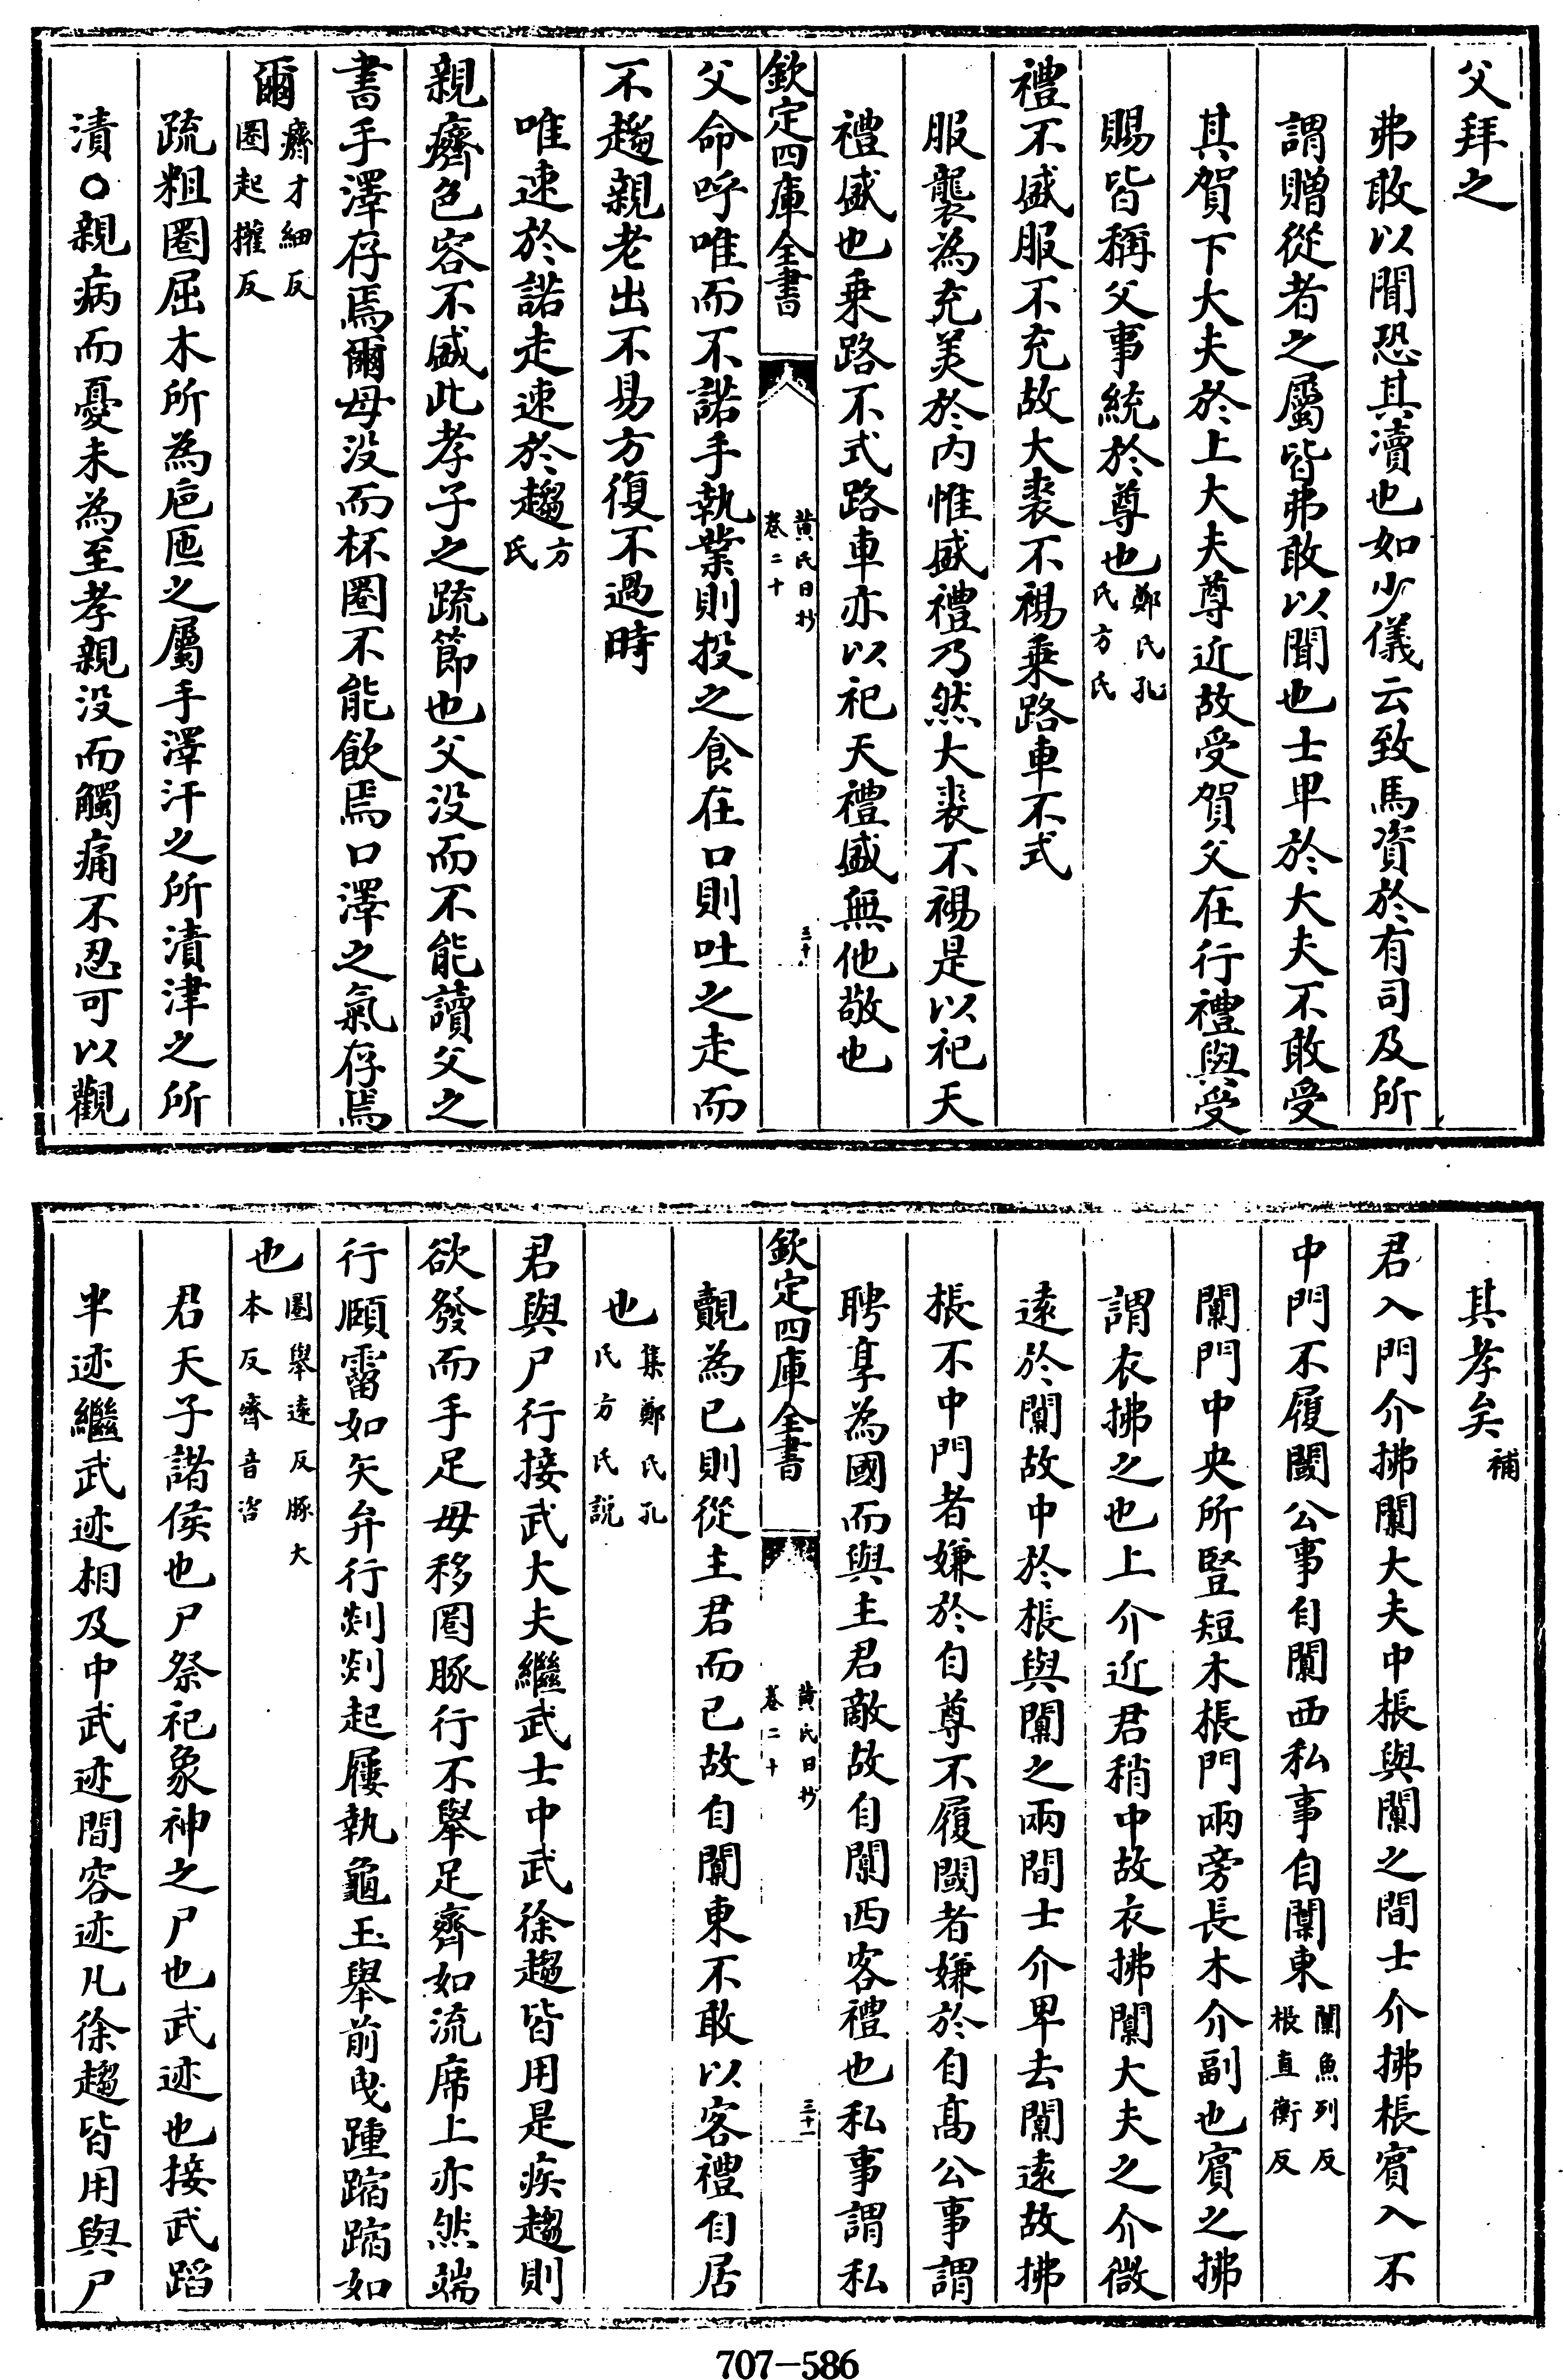 父拜之
弗敢以聞恐其瀆也如少儀云致馬資於有司及所
謂贈從者之屬皆弗敢以聞也士卑於大夫不敢受
其賀下大夫於上大夫尊近故受賀父在行禮與受
賜皆稱父事統於尊也鄭氏孔氏方氏
禮不盛服不充故大裘不裼乗路車不式
服襲為充美於内惟盛禮乃然大裘不裼是以祀天
禮盛也乗路不式路車亦以祀天禮盛無他敬也
欽定四庫全書 黄氏日抄卷二十 三十
父命呼唯而不諾手執業則投之食在口則吐之走而
不趨親老出不易方復不過時
唯速於諾走速於趨方氏
親癠色容不盛此孝子之疏節也父没而不能讀父之
書手澤存焉爾母没而杯圈不能飲焉口澤之氣存焉
爾癠才細反圈起權反
疏粗圈屈木所為巵匜之屬手澤汗之所漬津之所
漬○親病而憂未為至孝親没而觸痛不忍可以觀
其孝矣補
君入門介拂闑大夫中棖與闑之間士介拂棖賓入不
中門不履閾公事自闑西私事自闑東闑魚列反棖直衡反
闑門中央所豎短木棖門兩旁長木介副也賓之拂
謂衣拂之也上介近君稍中故衣拂闑大夫之介微
逺於闑故中於棖與闑之兩間士介卑去闑逺故拂
棖不中門者嫌於自尊不履閾者嫌於自髙公事謂
聘享為國而與主君敵故自闑西客禮也私事謂私
欽定四庫全書 黄氏日抄卷二十 三十一
覿為已則從主君而已故自闑東不敢以客禮自居
也集鄭氏孔氏方氏説
君與尸行接武大夫繼武士中武徐趨皆用是疾趨則
欲發而手足毋移圈豚行不舉足齊如流席上亦然端
行頤霤如矢弁行剡剡起屨執龜玉舉前曵踵蹜蹜如
也圈舉逺反豚大本反齊音咨
君天子諸侯也尸祭祀象神之尸也武迹也接武蹈
半迹繼武迹相及中武迹間容迹凡徐趨皆用與尸
707-586